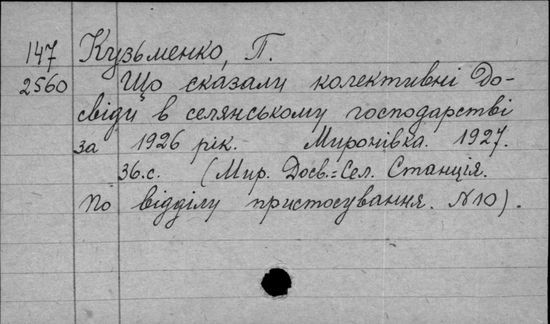 147 Кузьменко, П.
2560 Що сказали колективні До-
свіди в селянському господарстві
за 1926 рік. Миронівка. 1927.
36.с. (Мир. Досв.=Сел. Станція.
По відділу пристосування. N10).